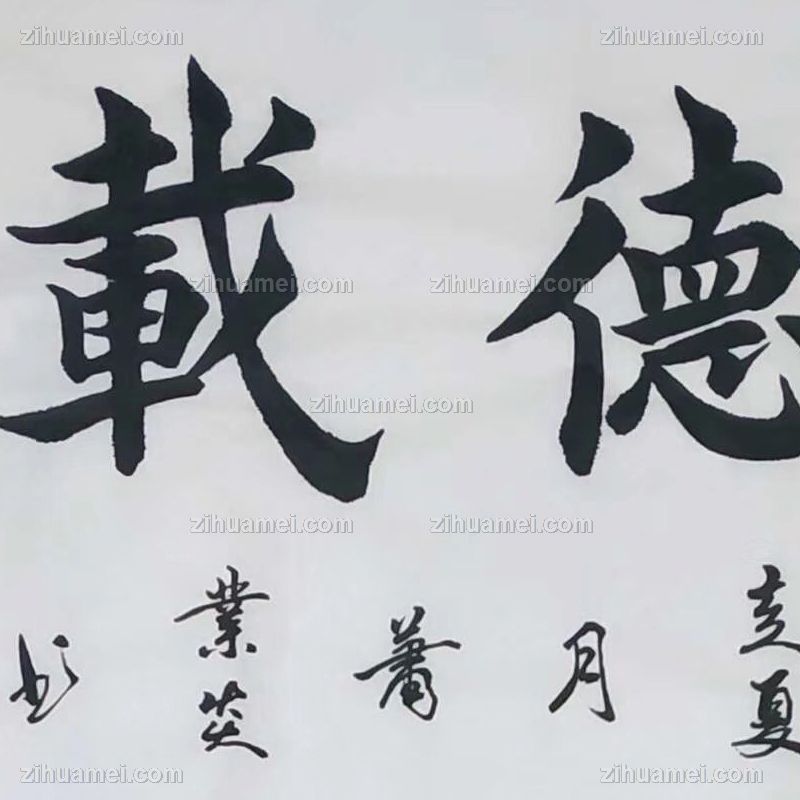 zihuamei.com zihuamei.com
德載
zihuamei.com zihuamei.com
zihuamei.com
zihuamei.com zihuamei.com
立夏
月
蕭
業
书
zihuamei.com zihuamei.com